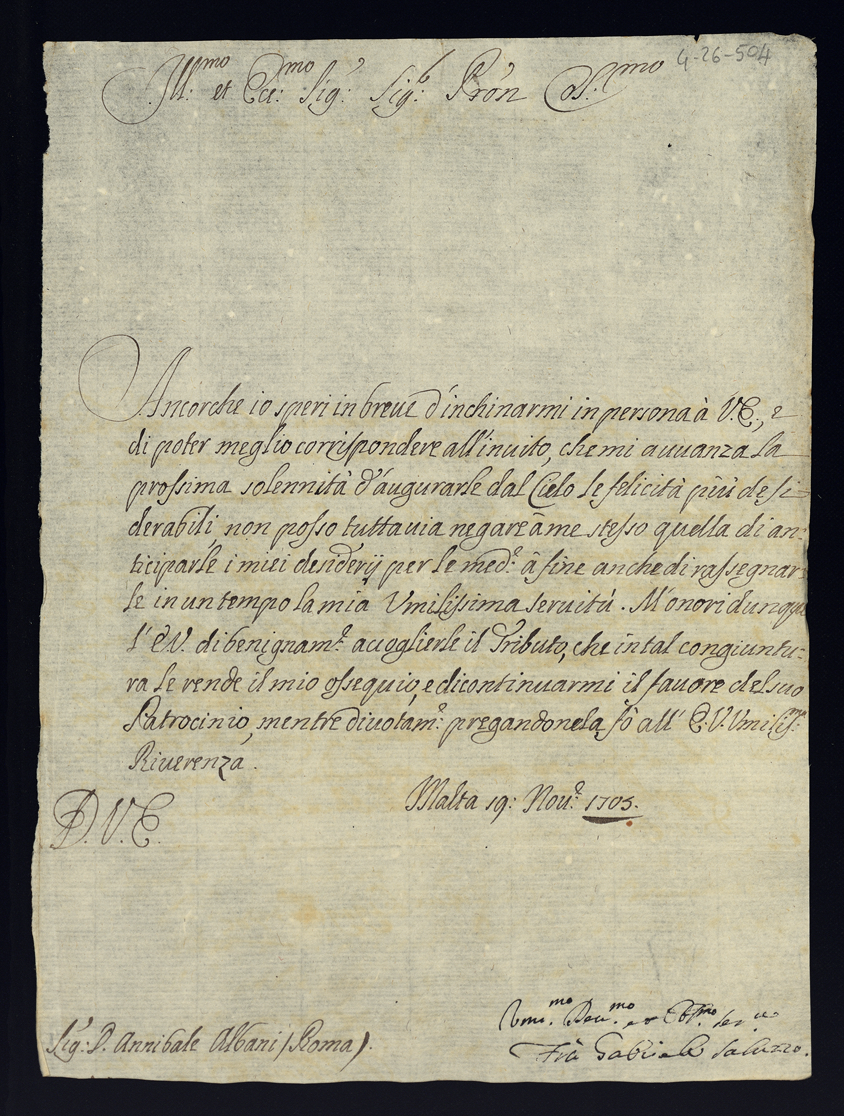 4-26-504
Ill.mo et Ecc.mo Sig.r Sig.r Prôn Oss.mo
Ancorche io speri in breue d'inchinarmi in persona à V.E., e
di poter meglio corrispondere all'inuito, che mi auuanza la
prossima solennità d'augurarle dal Cielo le felicità più desi-
derabili, non posso tuttauia negare à me stesso quella di an-
ticiparle i miei desiderij per le med.e à fine anche di rassegnar-
le in un tempo la mia Vmilissima seruitù. M'onori dunque
l'E.V. di benignam.te accoglierle il Tributo, che in tal congiuntu-
ra le rende il mio ossequio, e di continuarmi il fauore del suo
Patrocinio, mentre diuotam.te pregandonela, fò all'E.V. Vmiliss.ma
Riuerenza.
Malta 19: Nou.e 1705.
D.V.E.
Vmi.mo Deu.mo et Obl.mo ser.re
Frà Gabriele Saluzzo.
Sig.r D. Annibale Albani (Roma).